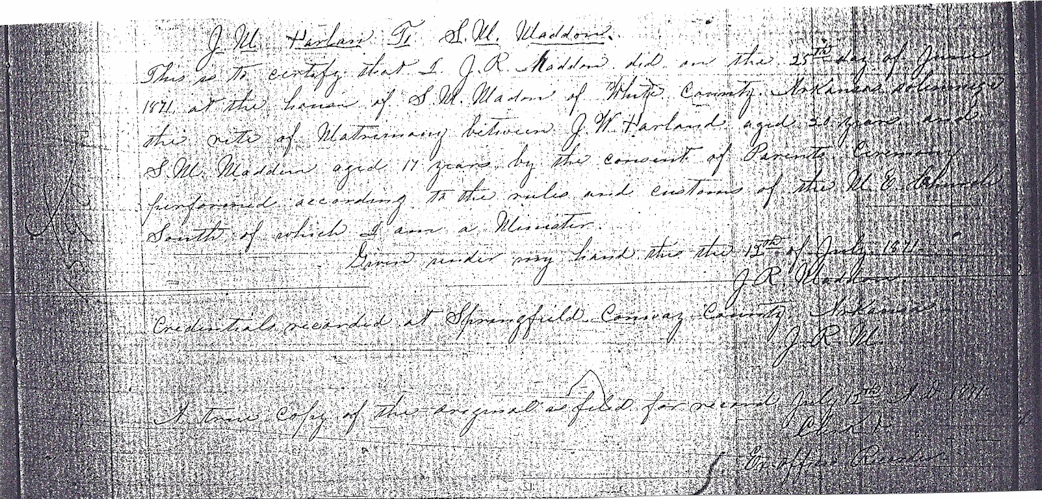 J. M. Harlan To S. M. Maddon.
This is to certify that I J. R. Maddon did on the 25th day of June
1871 at the house of S. M. Madon of White County Arkansas solemnize
the rite of Matrimony between J. W. Harland aged years and
S. M. Madden aged 17 years by the consent of Parents Ceremony
performed according to the rules and customs of the M. E. Church
South of which I am a Minister.
Given under my hand this the 13th of July 1871
J. R. Maddon
Credentials recorded at Springfield Conway County Arkansas
J. R. M
A true copy of the original as filed for record July 13th A.D. 1871
Clerk &
Ex officio Recorder